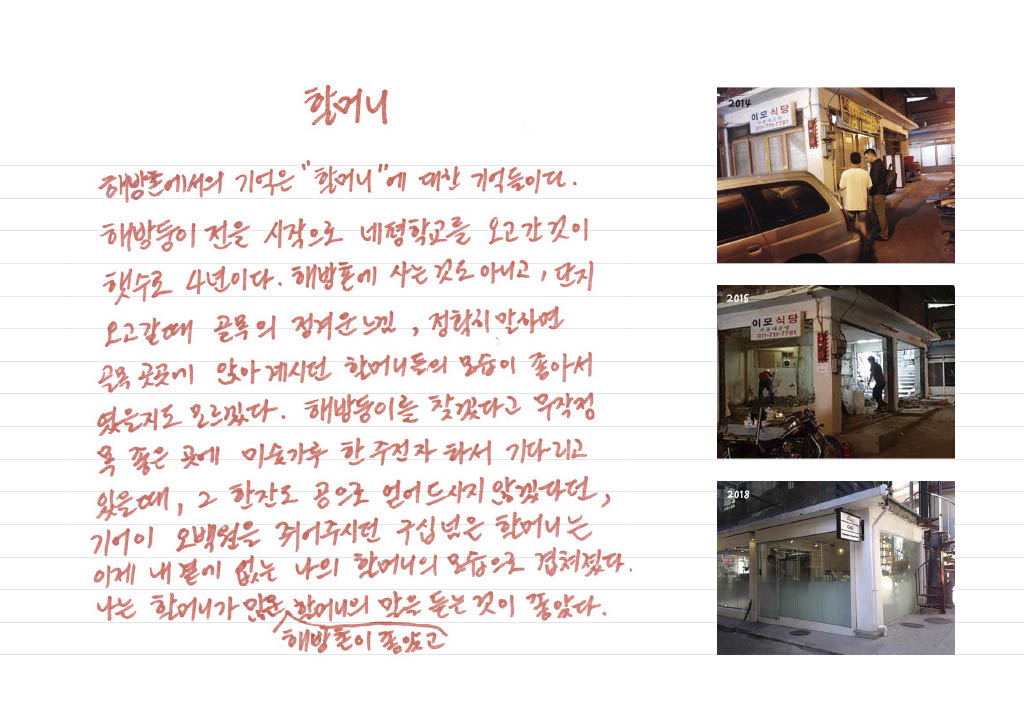 할머니
해방촌에서의 기억은 "할머니"에 대한 기억들이다.
해방둥이 전을 시작으로 네평학교를 오고간것이
햇수로 4년이다. 해방촌에 사는것도 아니고, 단지
오고갈때 골목의 정겨운느낌, 정확히 말하면
골목 곳곳에 앉아 계시던 할머니들의 모습이 좋아서
였을지도 모르겠다. 해방둥이를 찾겠다고 무작정
목 좋은 곳에 미숫가루 한 주전자 타서 기다리고
있을때, 그 한잔도 공으로 얻어드시지 않겠다던,
기어이 오백원을 쥐어주시던 구십 넘은 할머니는
이제 내 곁에 없는 나의 할머니의 모습으로 겹쳐졌다.
나는 할머니가 많은, 할머니의 말을 듣는 것이 좋았다.
해방촌이 좋았고
2014
이모식당
011-711-7781
2015
이모식당
011-711-7781
2018